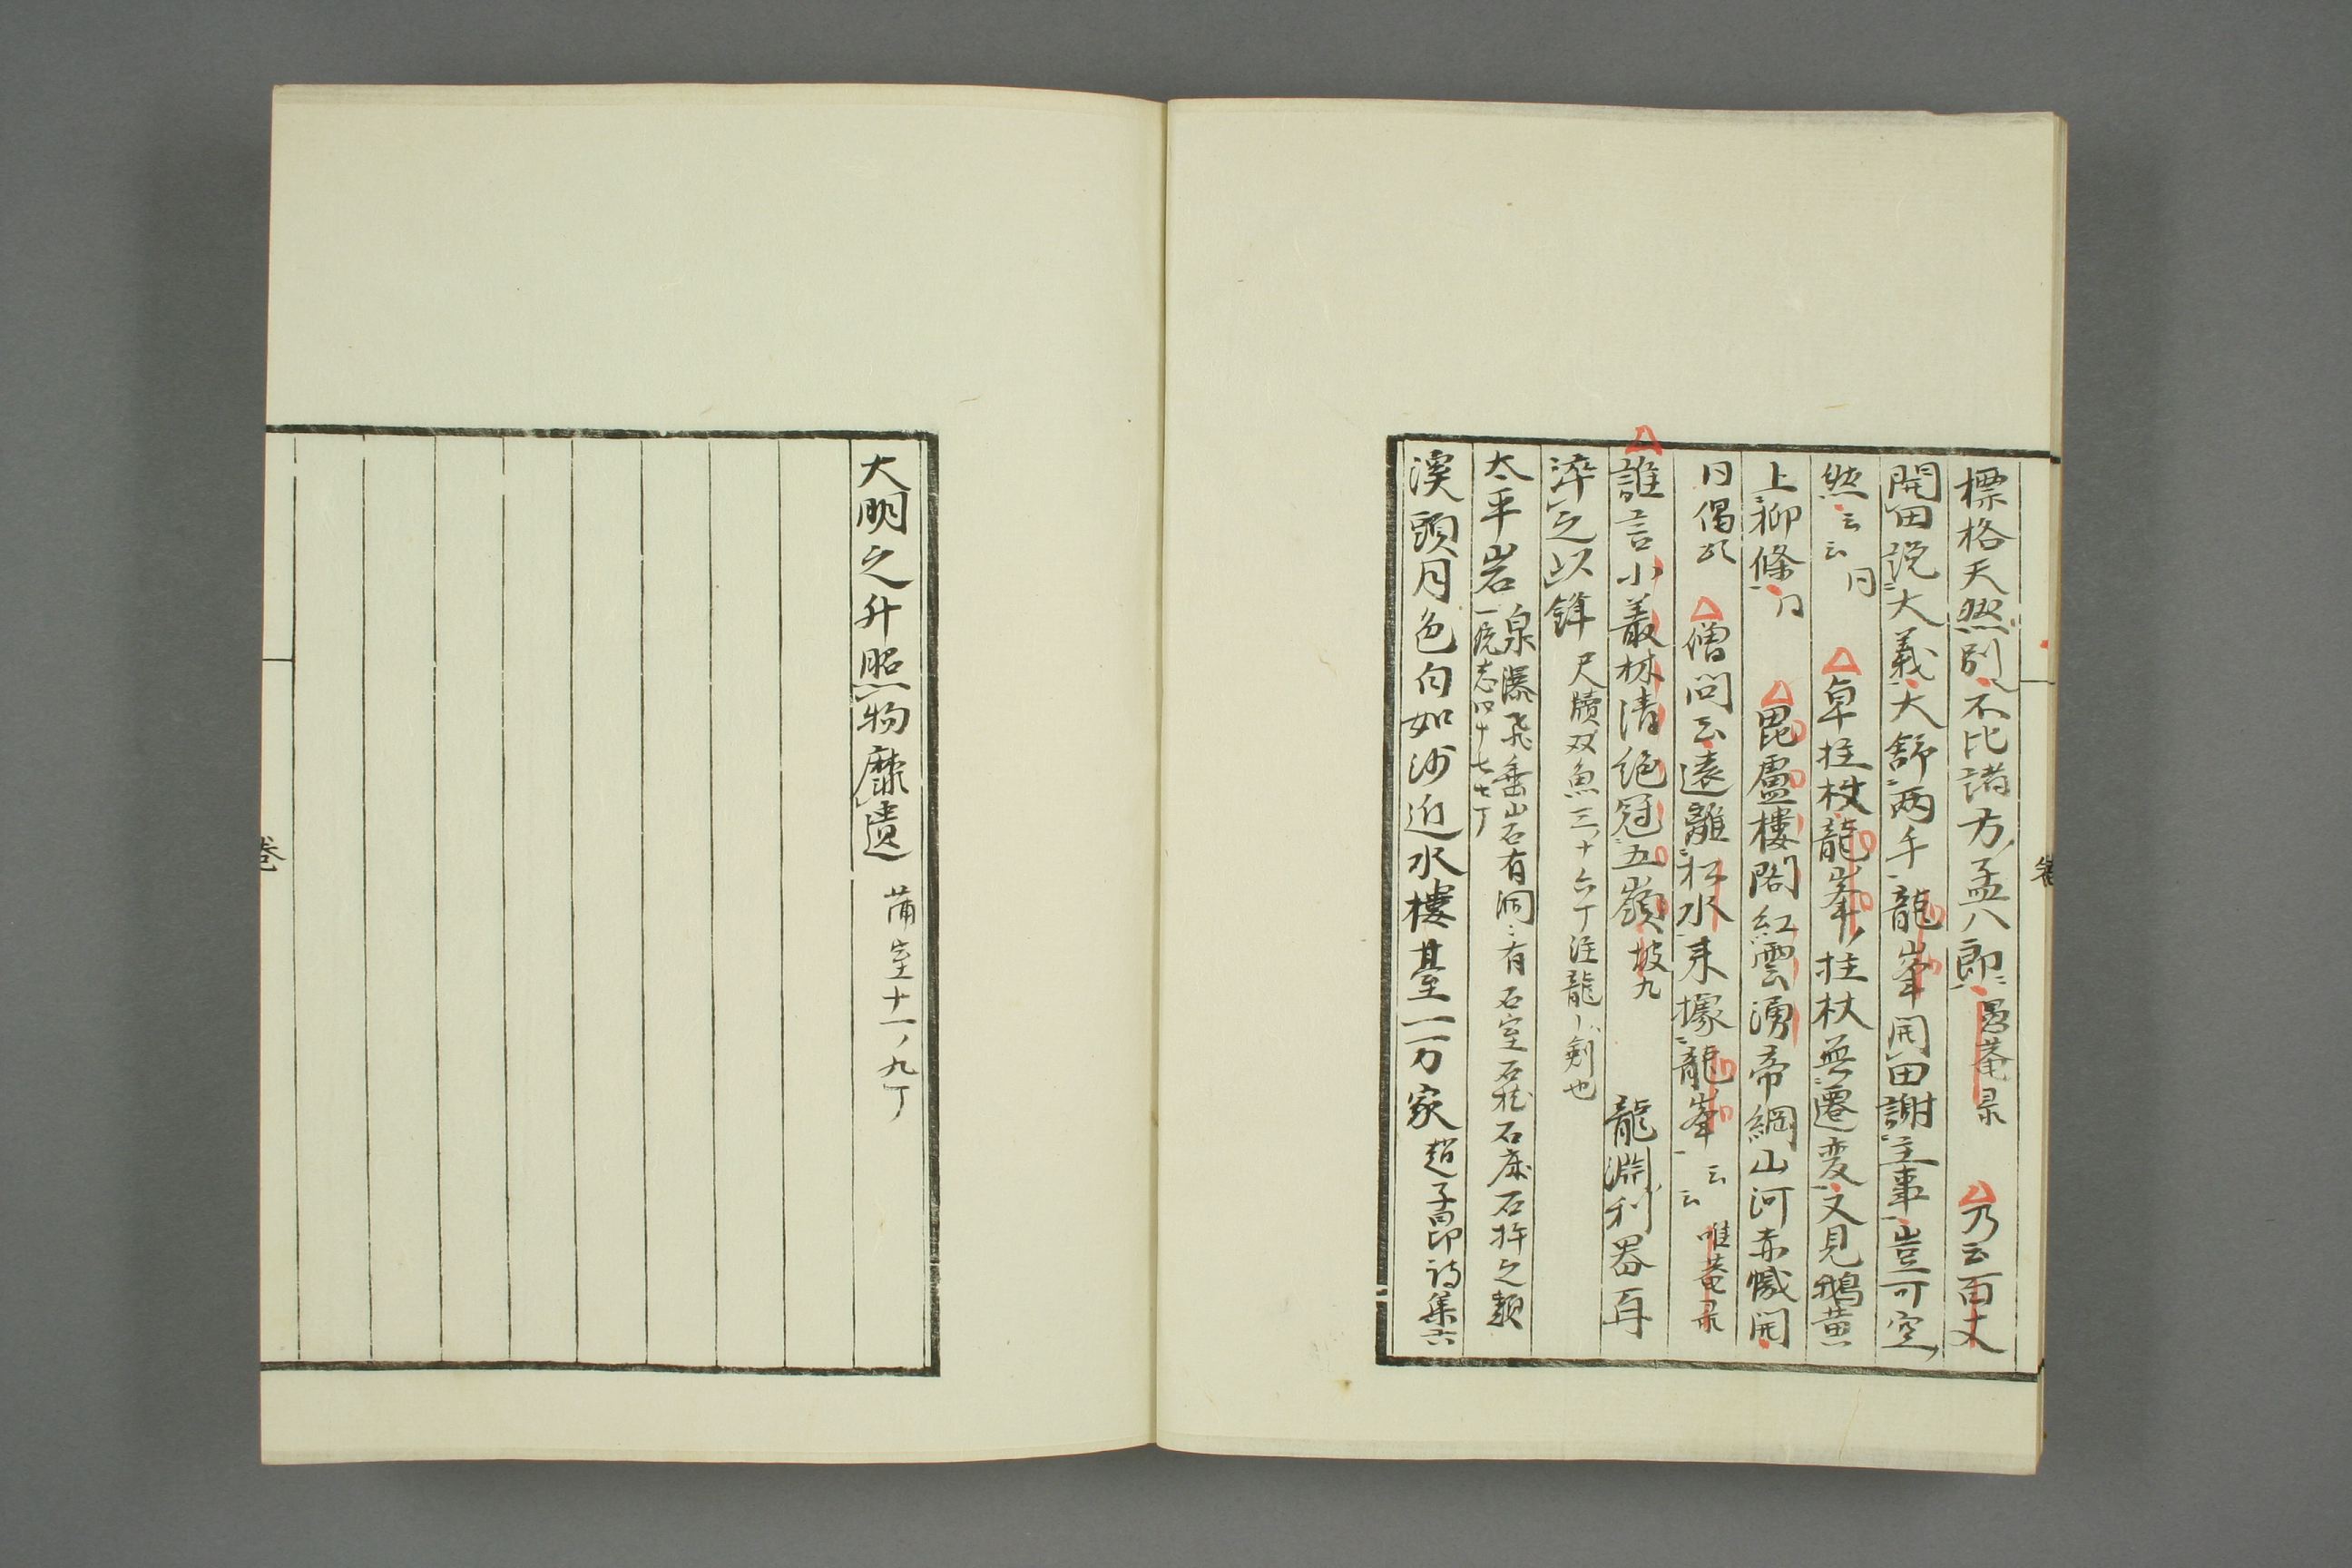 標格天然別不比諸方孟八郎愚菴录 乃云百丈
開田說大義大舒两手龍峯開田謝主事豈可空
然云云 同 卓拄杖龍峯拄杖無遷変又見鵝黄
上柳條同 毘盧樓閣紅雲湧帝網山河赤幟開
同偈頌 僧問云遠離松水来據龍峯云云 唯菴录
誰言小叢林清絶冠五嶺坡九 龍淵利器再
淬之以鋒 尺牘双魚三ノ十六丁注龍ハ剣也
太平岩 泉瀑飛垂山岩有洞ミ有石室石牀石床石杵之類
一統志四十七七丁
溪頭月色白如沙近水樓臺一万家 趙子昂詩集六
大明之升照物靡遺 蒲室十一ノ九丁
卷